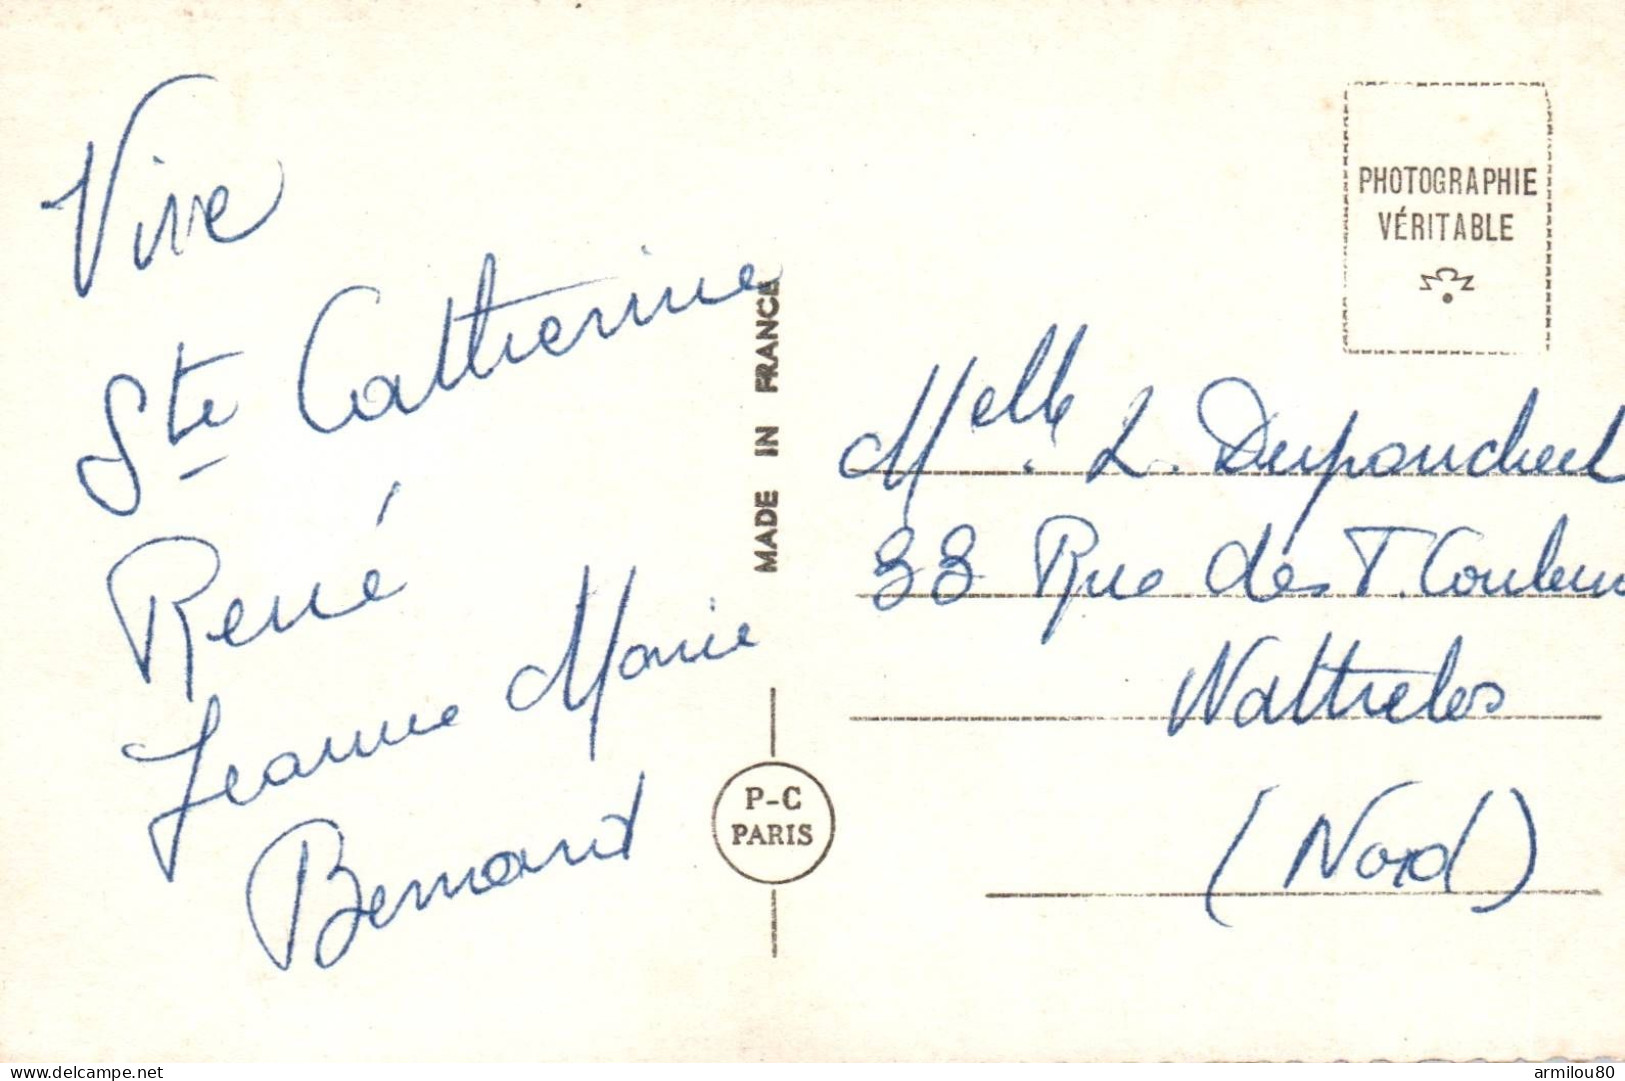 Vive
Ste Catherine
René
Jeanne Marie
Bernard
MADE IN FRANCE
P-C
PARIS
PHOTOGRAPHIE
VÉRITABLE
Melle. L. Duponcheel
33 Rue des T. Couleurs
Wattrelos
(Nord)
www.delcampe.net
armilou80